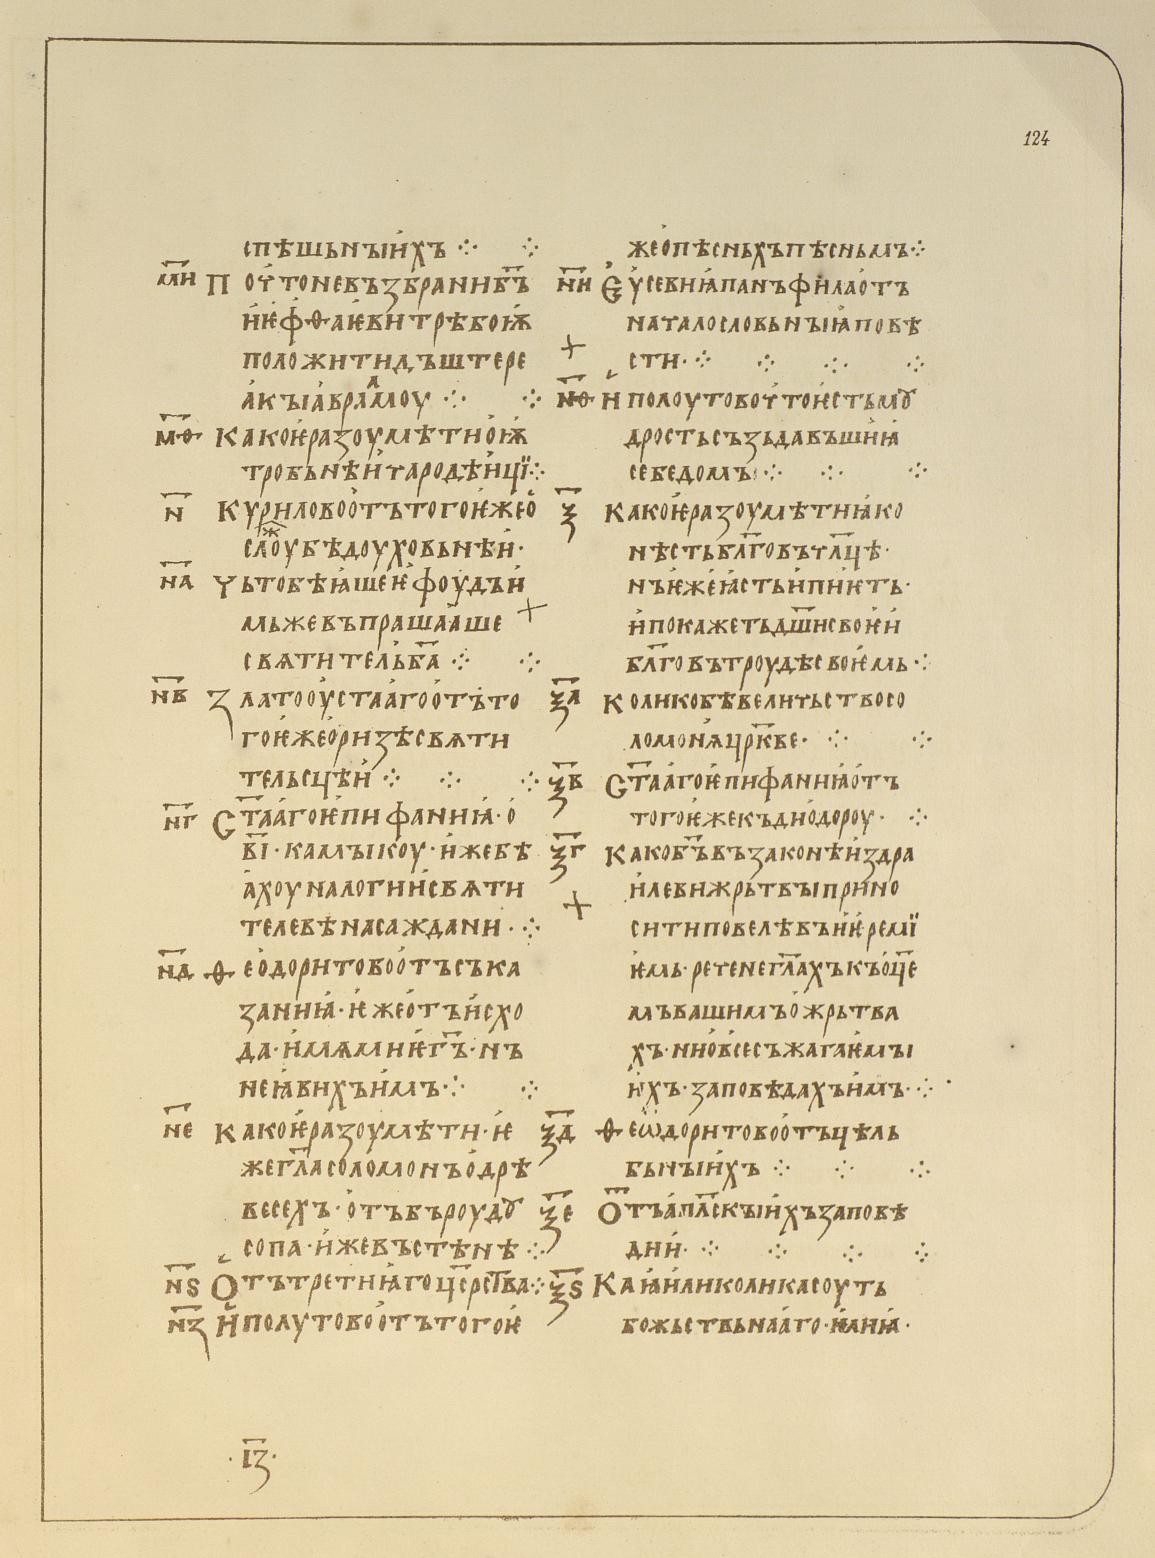 124
спѣшьнꙑихъ ⁘ ⁘
м҃и Поуто невъзбранибъ҃
иѥфѳаѥви трѣбоѭ
положити дъштере
акꙑ аврамоу ⁘ ⁘
м҃ѳ Како ѥ разоумѣтиоѭ
тробьнѣи тародѣиці ⁘
н҃ Курилово отътогоѥжео
слоужбѣдоуховьнѣи·
н҃а Чьтобѣꙗшеѥфоудъи
мьжевъпрашааше
свѧтительба҃ ⁘ ⁘
н҃в Златооустааго отъто
гоѥжеоризѣсвѧти
тельсцѣи ⁘ ⁘ ⁘
н҃г Ст҃ааго ѥпифаниꙗ· о
в҃і· камꙑкоу· ижебѣ
ахоу на логиисвѧти
телевѣнасаждани· ⁘
н҃д Ѳеодоритово отъсъка
заниꙗ· ѥжеотъисхо
да· имѧмиѥг҃ъ· нъ
неꙗвихъимъ· ⁘ ⁘
н҃е Како ѥ разоумѣти· ѥ
жегл҃асоломонъ одрѣ
весехъ· отъвъроуду
сопа· ижевъстѣнѣ ⁘
н҃ѕ Отътретиꙗгоцс҃рства ⁘
н҃з Иполутово отътогоѥ
жеопѣсньхъпѣсньмъ ⁘
н҃и Еусевиꙗпанъфилаотъ
наталословьнꙑꙗповѣ
сти· ⁘ ⁘ ⁘ ⁘
н҃ѳ Иполоутовоутоѥстьму
дростьсъзьдавъшиꙗ
себедомъ ⁘ ⁘ ⁘
ѯ҃ Како ѥ разоумѣтиꙗко
нѣстьбл҃говъчл҃цѣ·
нъѥжеꙗстьипиѥть·
ипокажетьдш҃исвоѥи
бл҃говътроудѣсвоѥмь ⁘
ѯ҃а Коликобѣвеличьствосо
ломонѧцрк҃ве· ⁘ ⁘
ѯ҃в Ст҃ааго ѥпифаниꙗотъ
тогоѥжекъдиодороу· ⁘
ѯ҃г Какобъ҃възаконѣиздра
илевижрьтвꙑприно
ситиповелѣвъиѥремі
ѥмь· реченегл҃ахъкъоц҃е
мъвашимъожрьтва
хъ· ниовсесъжагаѥмꙑ
ихъ· заповѣдахъимъ· ⁘
ѯ҃д Ѳеѡдоритово отъцѣль
бьнꙑихъ ⁘ ⁘ ⁘
ѯ҃е Отъапл҃скꙑихъзаповѣ
дии· ⁘ ⁘ ⁘ ⁘
ѯ҃ѕ Каꙗиликоликасоуть
божьствьнааго·
·і҃з·